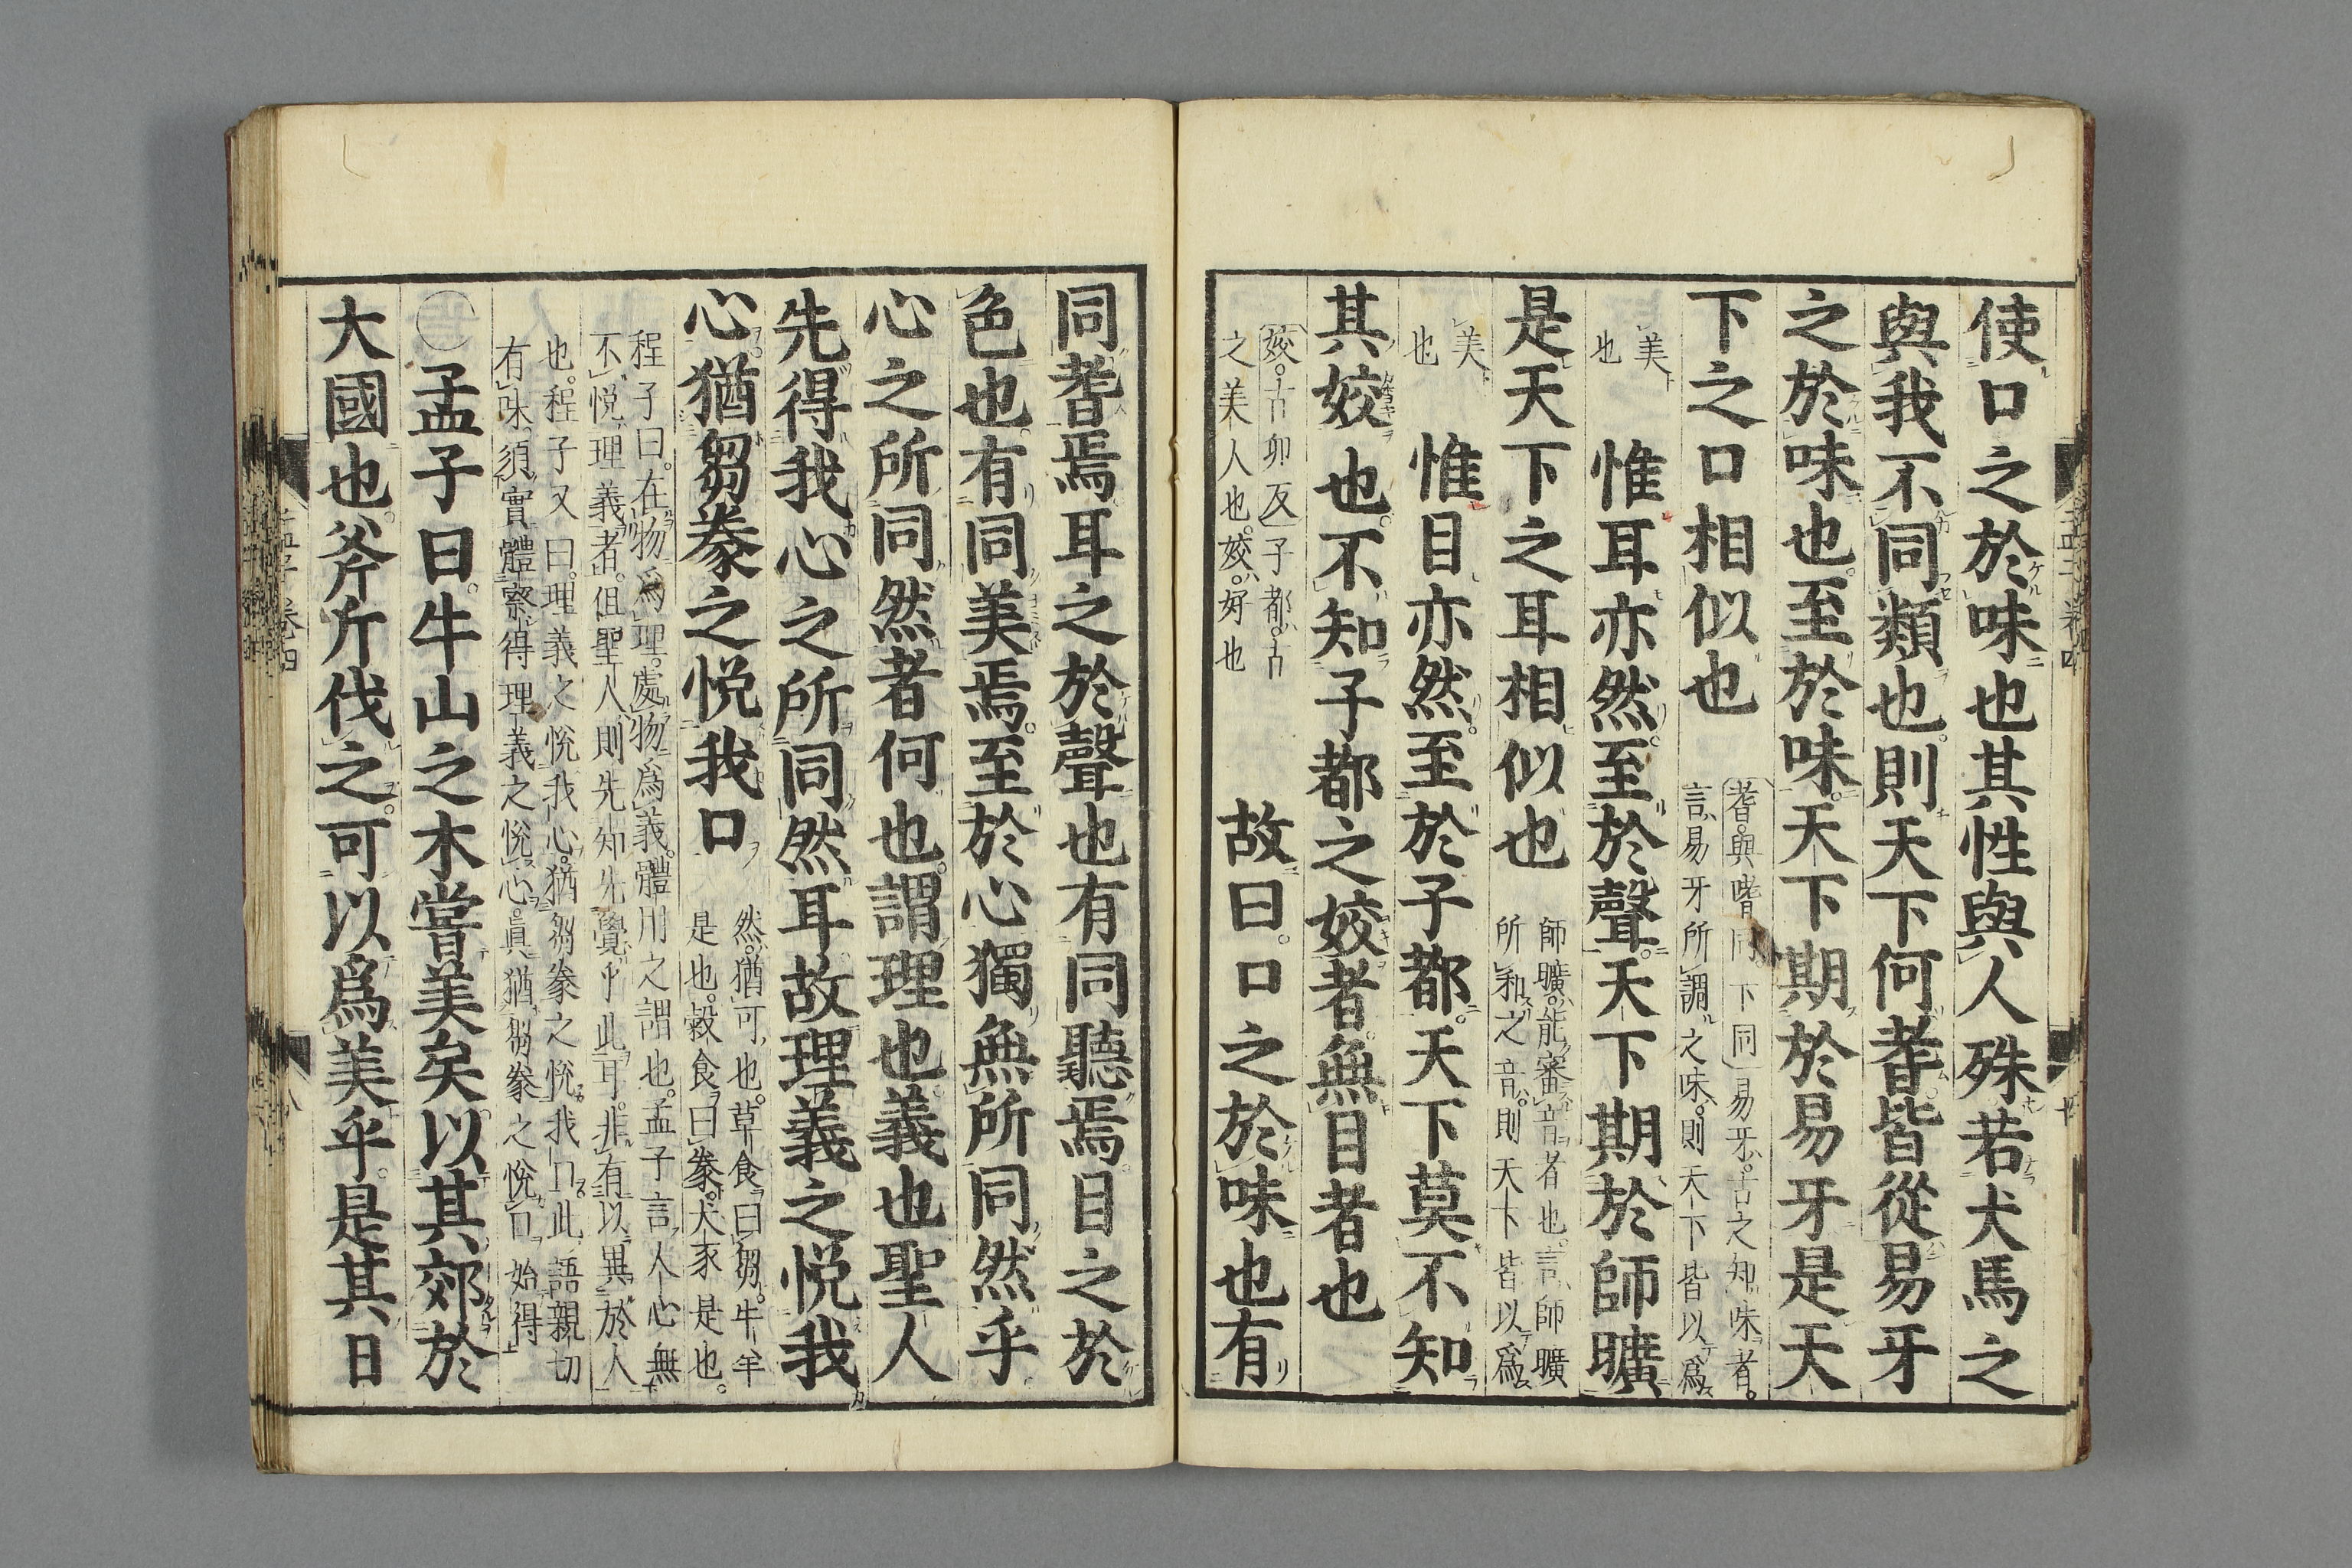 使口之於味也其性與人殊若犬馬之
與我不同類也則天下何耆皆從易牙
之於味也至於味天下期於易牙是天
下之口相似也
耆與嗜同下同易牙古之知味者
言易牙所調之味則天下皆以爲
美
也
惟耳亦然至於聲天下期於師曠
是天下之耳相似也
師曠能審音者也言師曠
所和之音則天下皆以爲
美
也
惟目亦然至於子都天下莫不知
其姣也不知子都之姣者無目者也
姣古卯反子都古
之美人也姣好也
故曰口之於味也有
同耆焉耳之於聲也有同聽焉目之於
色也有同美焉至於心獨無所同然乎
心之所同然者何也謂理也義也聖人
先得我心之所同然耳故理義之悅我
心猶芻豢之悅我口
然猶可也草食曰芻牛羊
是也穀食曰豢犬豕是也
程子曰在物爲理處物爲義體用之謂也孟子言人心無
不悅理義者但聖人則先知先覺乎此耳非有以異於人
也程子又曰理義之悅我心猶芻豢之悅我口此語親切
有味須實體察得理義之悅心眞猶芻豢之悅口始得
〇孟子曰牛山之木嘗美矣以其郊於
大國也斧斤伐之可以爲美乎是其日